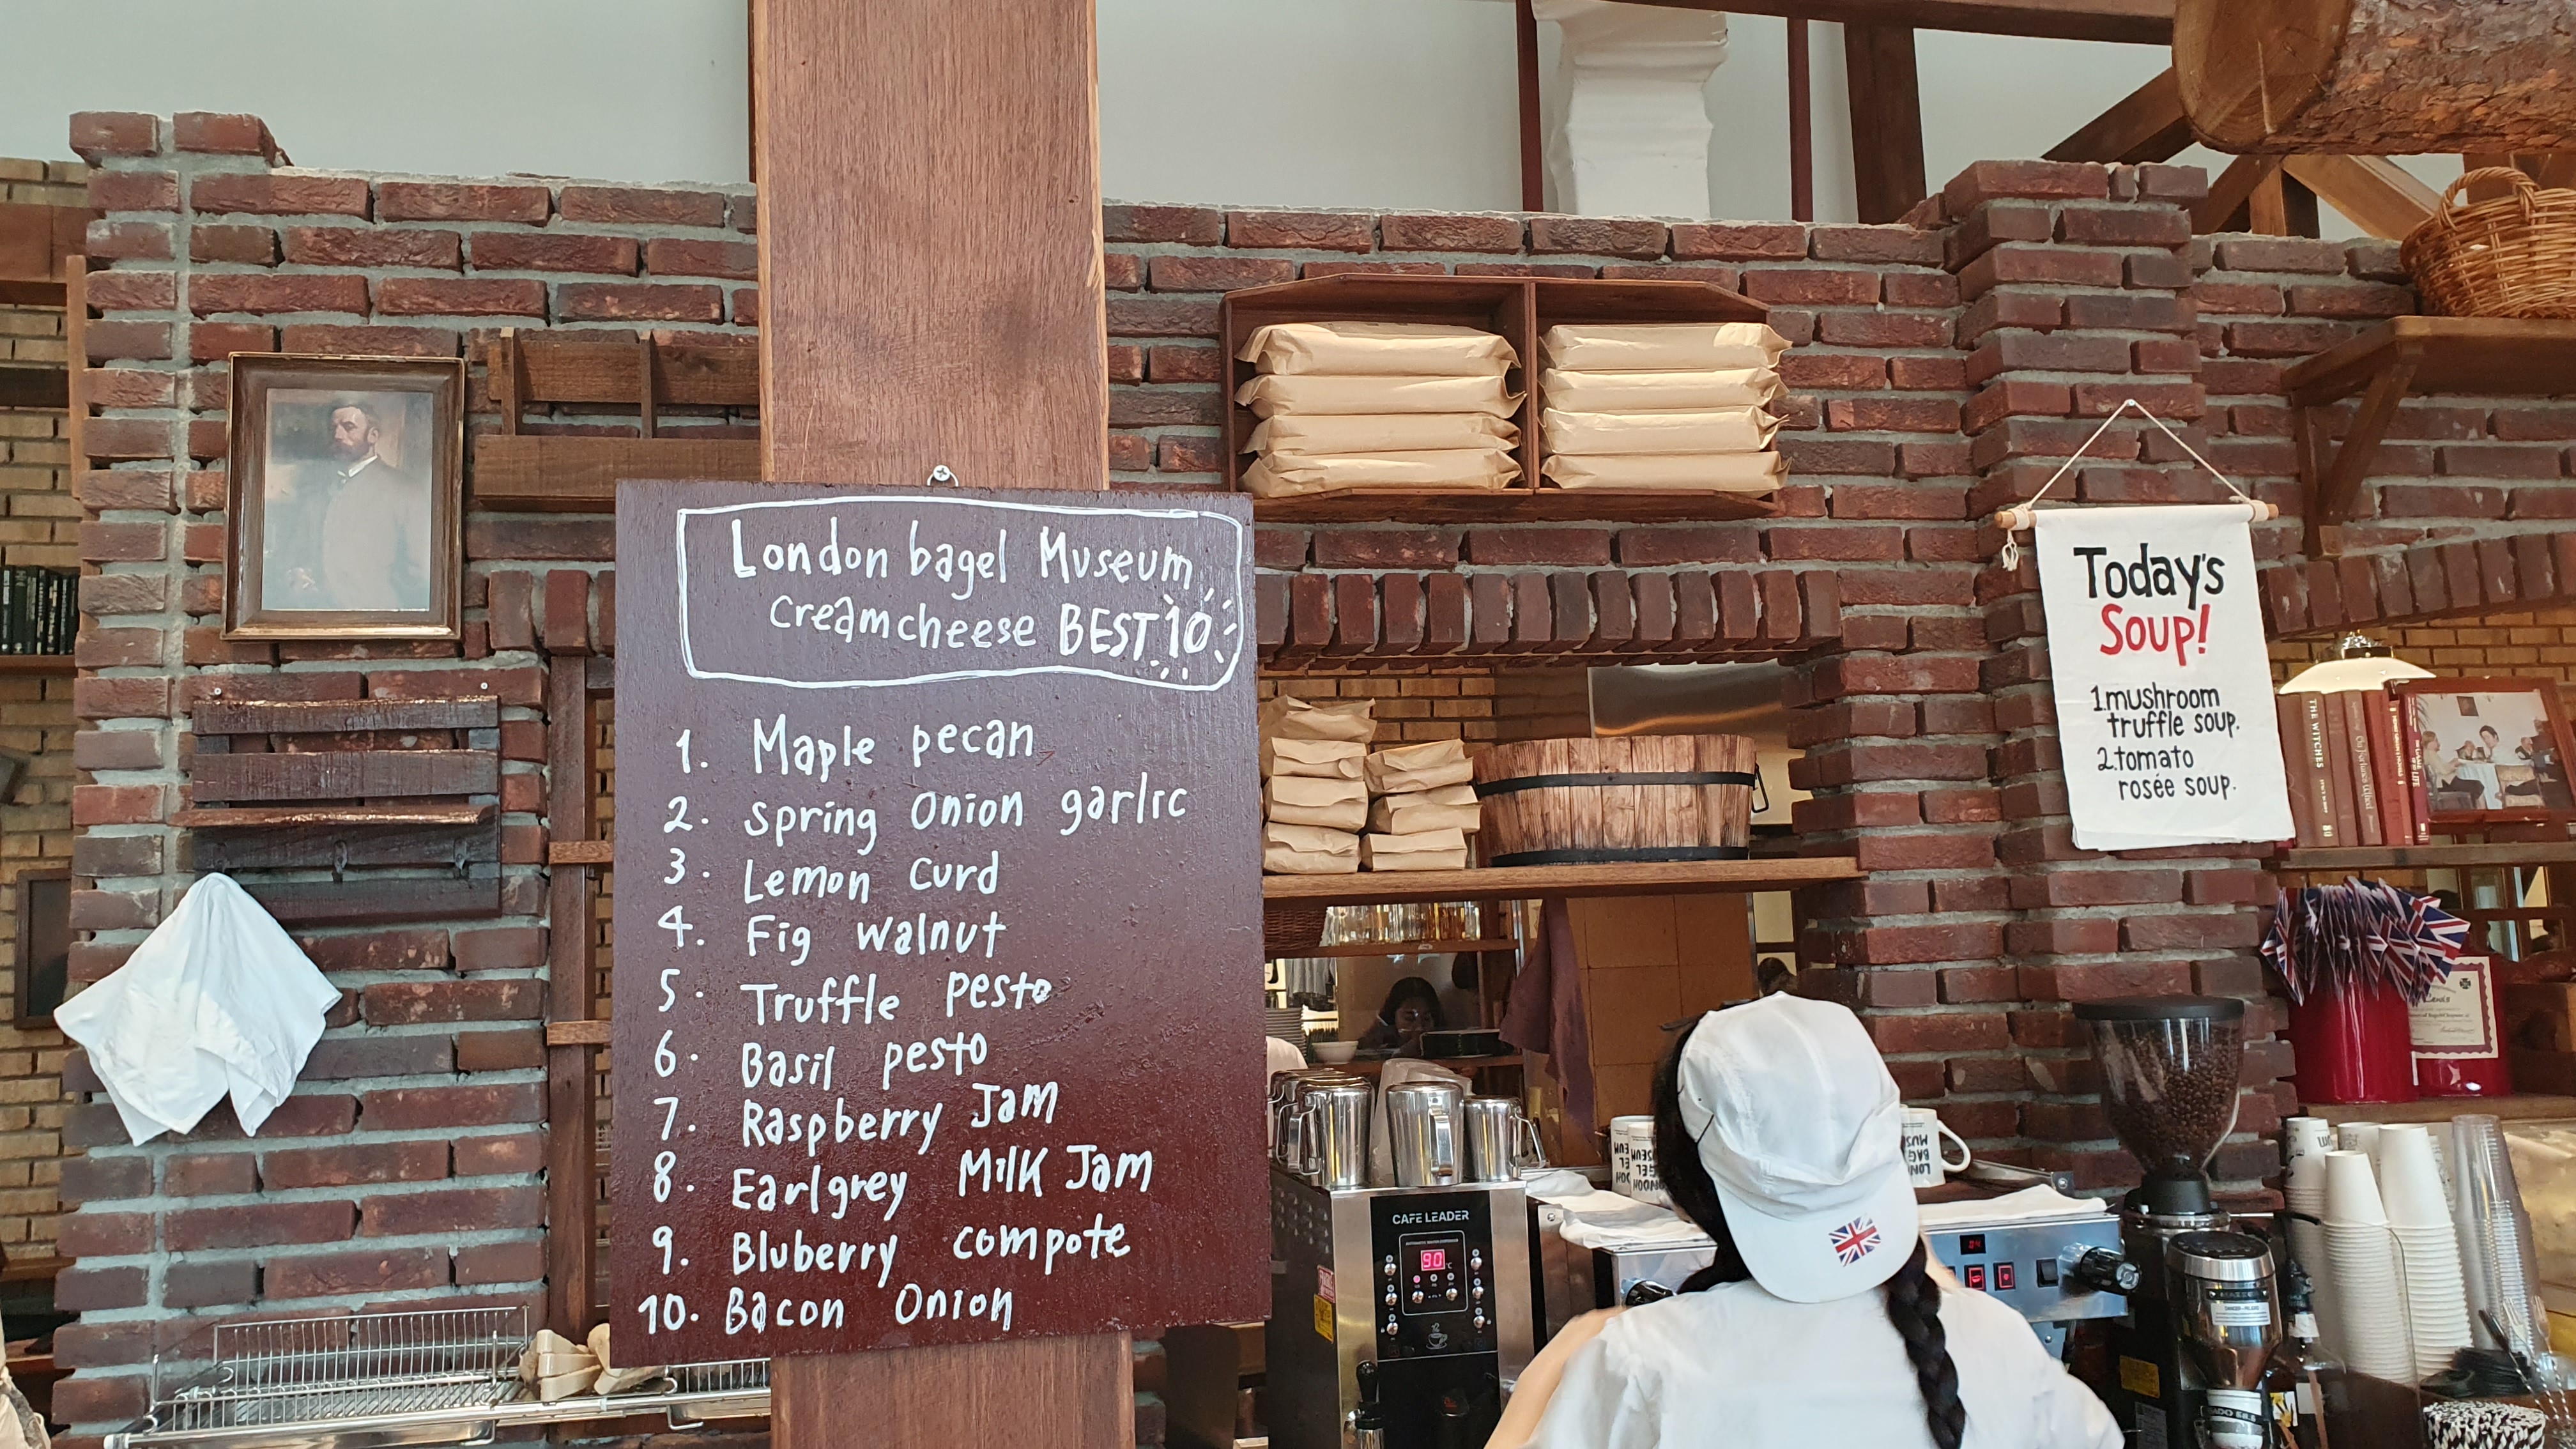 London bagel Museum
creamcheese BEST 10
1. Maple pecan
2. spring onion garlic
3. Lemon curd
4. Fig walnut
5. Truffle pesto
6. Basil pesto
7. Raspberry Jam
8. Earlgrey Milk Jam
9. Bluberry compote
10. Bacon Onion
Today's
Soup!
1.mushroom
truffle soup.
2.tomato
rosée soup.
THE WITCHES
CAFE LEADER
90